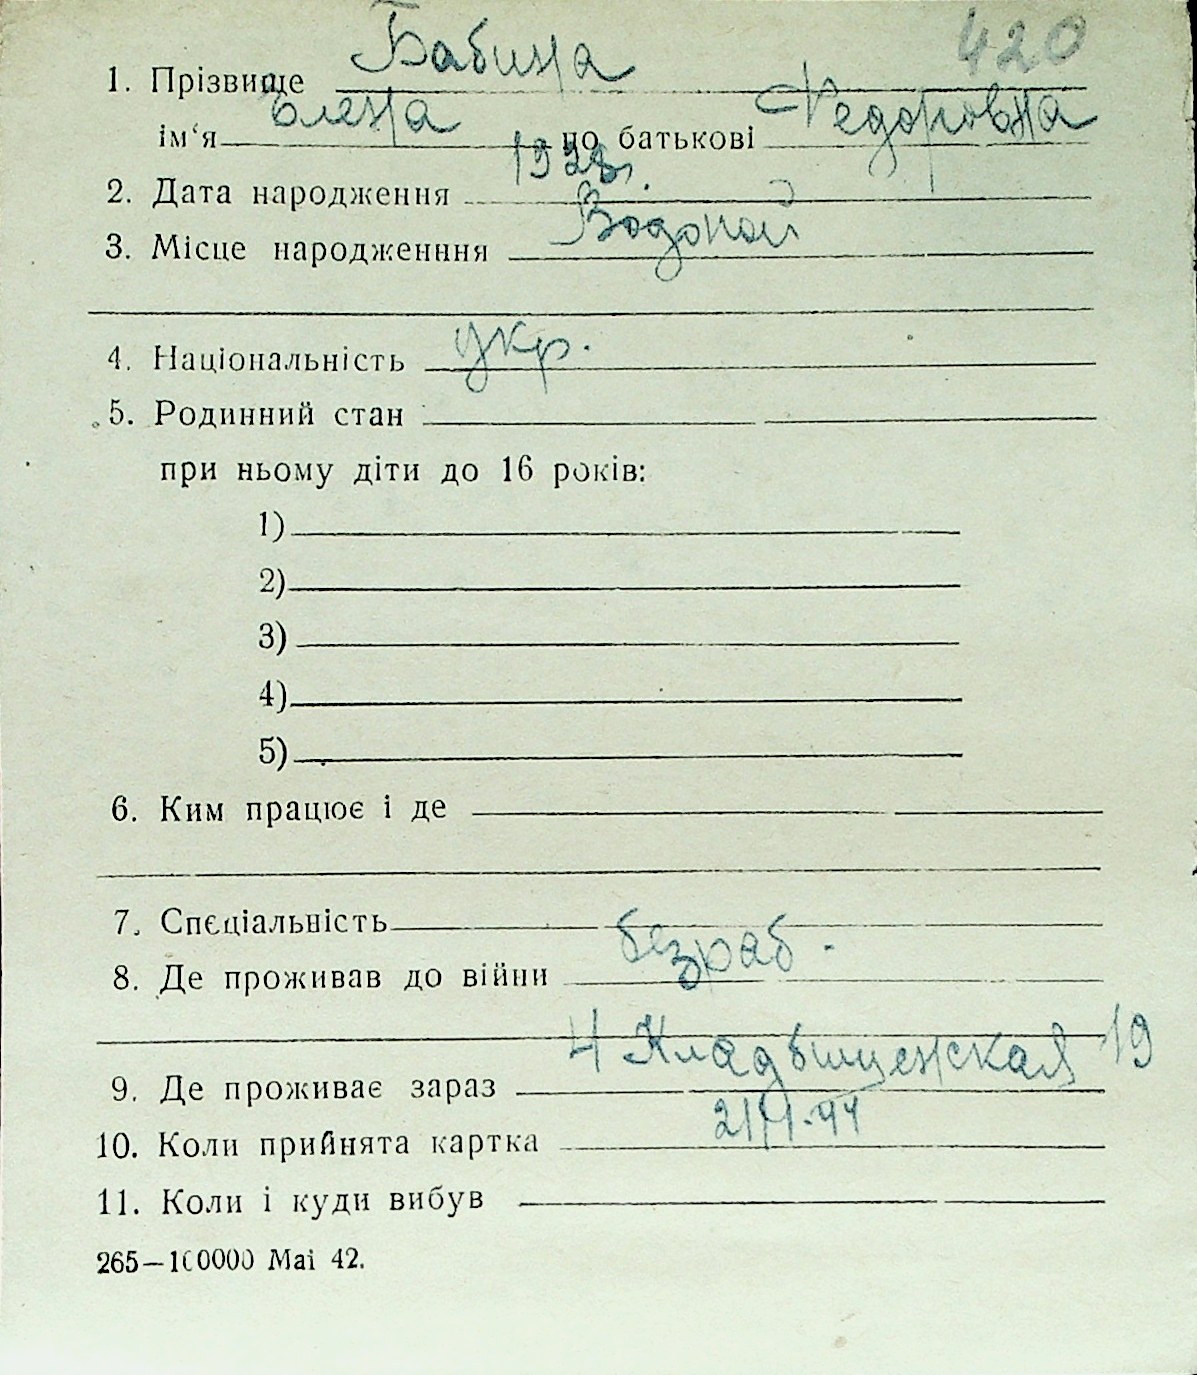 420
1. Прізвище Бабина
ім‘я Елена по батькові Федоровна
2. Дата народження
3. Місце народженння Водопой
4. Національність укр.
5. Родинний стан
при ньому діти до 16 років:
1)
2)
3)
4)
5)
6. Ким працює і де
7. Спєціальність
8. Де проживав до війни безраб.
9. Де проживає зараз 4 Кладбищенская 19
10. Коли прийнята картка
11. Коли і куди вибув
265—100000 Маі 42.